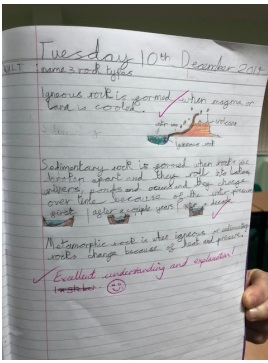 Tuesday 10th December 2019
W.I.T: name 3 rock types
Igneous rock is formed when magma or
lava is cooled.
igneous rock
Sedimentary rock is formed when rocks get
broken apart and they roll into lakes,
rivers, ponds and ocean and they change
over time because of the water pressure
first
after a couple years
Metamorphic rock is when igneous or sedimentary
rocks change because of heat and pressure.
Excellent understanding and explanation!